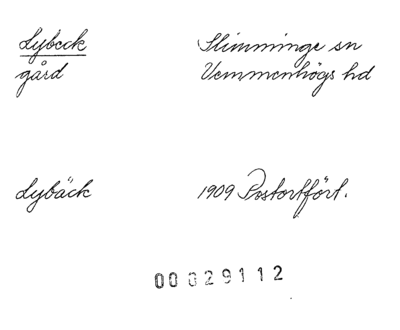 Lybeck Slimminge sn
gård Vemmenhögs hd
Lybäck 1909 Postortfört.
00029112